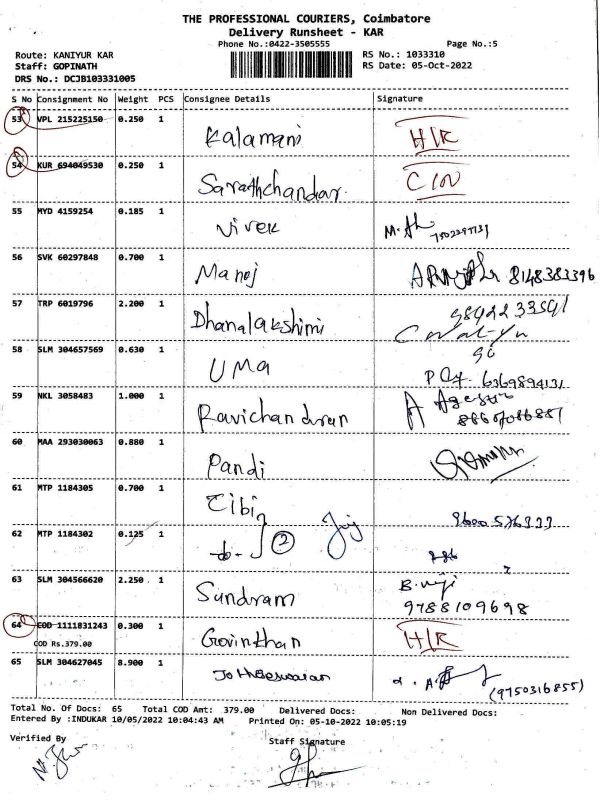 THE PROFESSIONAL COURIERS, Coimbatore
Delivery Runsheet - KAR
Phone No.:0422-3505555 Page No.:5
Route: KANIYUR KAR RS No.: 1033310
Staff: GOPINATH RS Date: 05-Oct-2022
DRS No.: DCJB103331005
S No Consignment No Weight PCS Consignee Details Signature
53 VPL 215225150 0.250 1 Kalamani H/R
54 KUR 694049530 0.250 1 Sarathchandar
55 MYD 4159254 0.185 1 Vivek
56 SVK 60297848 0.700 1 Manoj 8148383396
57 TRP 6019796 2.200 1 Dhanalakshimi
58 SLM 304657569 0.630 1 UMA
59 NKL 3058483 1.000 1 Ravichandran
60 MAA 293030063 0.880 1 Pandi
61 MTP 1184305 0.700 1 Cibi
62 MTP 1184302 0.125 1 -do- 2
63 SLM 304566620 2.250 1 Sundram 9788109698
64 COD 1111831243 0.300 1 Govinthan H/R
COD Rs.379.00
65 SLM 304627045 8.900 1 (9750316855)
Total No. Of Docs: 65 Total COD Amt: 379.00 Delivered Docs: Non Delivered Docs:
Entered By :INDUKAR 10/05/2022 10:04:43 AM Printed On: 05-10-2022 10:05:19
Verified By Staff Signature